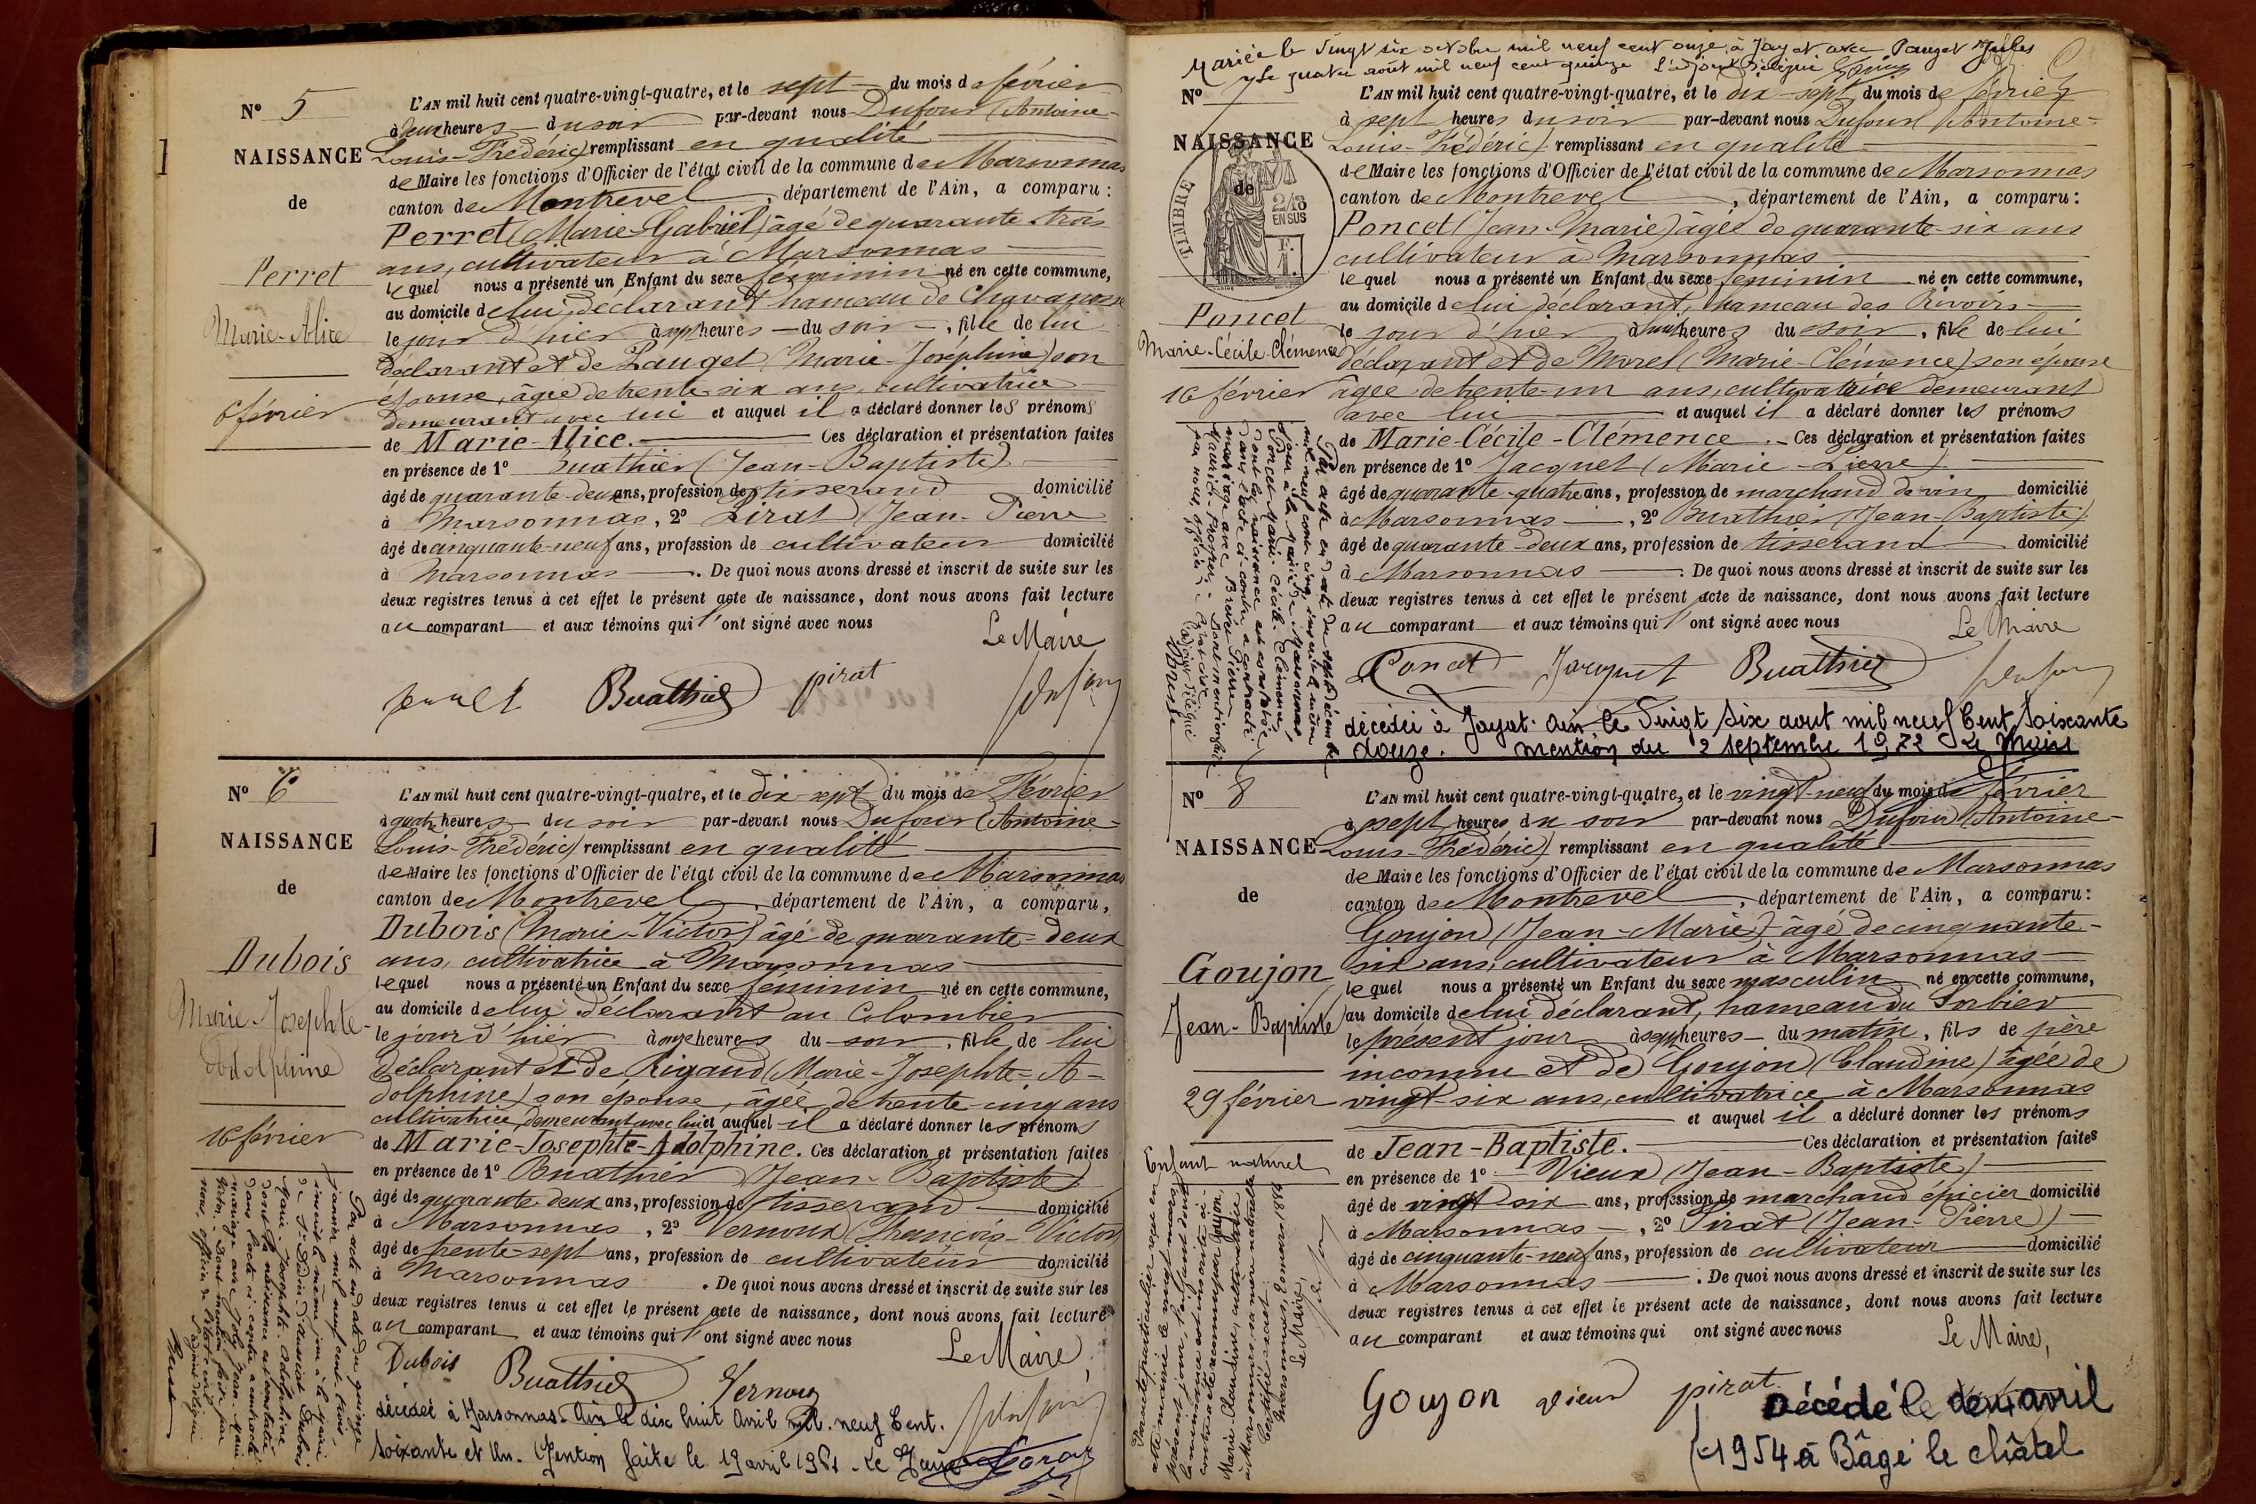 Nº 5
NAISSANCE
de
Perret
Marie-Alice
6 février
L'AN mil huit cent quatre-vingt-quatre, et le sept du mois de février
à heures du soir par-devant nous Dufour (Antoine-
Louis-Frédéric) remplissant en qualité
de Maire les fonctions d'Officier de l'état civil de la commune de Marsonnas
canton de Montrevel, département de l'Ain, a comparu:
Perret (Marie-Gabriel) âgé de quarante-trois
ans, cultivateur à Marsonnas
lequel nous a présenté un Enfant du sexe féminin né en cette commune,
au domicile de lui déclarant hameau de Chavannes
le jour d'hier à sept heures du soir, fille de lui
déclarant et de Pauget (Marie-Joséphine) son
épouse, âgée de trente-six ans, cultivatrice
demeurant avec lui et auquel il a déclaré donner les prénoms
de Marie-Alice. Ces déclaration et présentation faites
en présence de 1º Buathier (Jean-Baptiste)
âgé de quarante-deux ans, profession de tisserand domicilié
à Marsonnas, 2º Pirat (Jean-Pierre
âgé de cinquante-neuf ans, profession de cultivateur domicilié
à Marsonnas. De quoi nous avons dressé et inscrit de suite sur les
deux registres tenus à cet effet le présent acte de naissance, dont nous avons fait lecture
au comparant et aux témoins qui l'ont signé avec nous
Le Maire
Perret Buathier pirat Dufour
Nº 6
NAISSANCE
de
Dubois
Marie-Josephte-
Adolphine
16 février
L'AN mil huit cent quatre-vingt-quatre, et le dix-sept du mois de Février
à quatre heures du soir par-devant nous Dufour (Antoine-
Louis-Frédéric) remplissant en qualité
de Maire les fonctions d'Officier de l'état civil de la commune de Marsonnas
canton de Montrevel, département de l'Ain, a comparu,
Dubois (Marie-Victor) âgé de quarante-deux
ans, cultivatrice à Marsonnas
lequel nous a présenté un Enfant du sexe féminin né en cette commune,
au domicile de lui déclarant au Colombier
le jour d'hier à onze heures du soir, fille de lui
déclarant et de Rigaud (Marie-Josephte-A-
dolphine) son épouse, âgée de trente-cinq ans
cultivatrice, demeurant avec lui et auquel il a déclaré donner les prénoms
de Marie-Josephte-Adolphine. Ces déclaration et présentation faites
en présence de 1º Buathier (Jean-Baptiste)
âgé de quarante-deux ans, profession de tisserand domicilié
à Marsonnas, 2º Vernoux (François-Victor
âgé de trente-sept ans, profession de cultivateur domicilié
à Marsonnas. De quoi nous avons dressé et inscrit de suite sur les
deux registres tenus à cet effet le présent acte de naissance, dont nous avons fait lecture
au comparant et aux témoins qui l'ont signé avec nous
Le Maire
Dubois Buathier Vernoux Dufour
décédée à Marsonnas Ain le dix huit Avril mil neuf Cent.
Soixante et Un. Mention faite le 19 avril 1961 - Le Maire
Par acte en date du quinze
janvier mil neuf cent trois,
inscrit le même jour à la mairie
de St Didier d'Aussiat Dubois
Marie-Josephte-Adolphine
dont la naissance est constatée
dans l'acte ci-contre a contracté
mariage avec Joly Jean-Marie
Victor. Dont mention faite par
nous, officier de l'état civil
L'adjoint délégué
Mariée le vingt six octobre mil neuf cent onze à Jayat avec Pauget Jules
le quatre août mil neuf cent quinze L'adjoint délégué
Nº
NAISSANCE
de
TIMBRE
2/10
EN SUS
F.
1.
Poncet
Marie-Cécile-Clémence
16 février
L'AN mil huit cent quatre-vingt-quatre, et le dix-sept du mois de février
à sept heures du soir par-devant nous Dufour (Antoine-
Louis-Frédéric) remplissant en qualité
de Maire les fonctions d'Officier de l'état civil de la commune de Marsonnas
canton de Montrevel, département de l'Ain, a comparu:
Poncet (Jean-Marie) âgé de quarante-six ans
cultivateur à Marsonnas
lequel nous a présenté un Enfant du sexe féminin né en cette commune,
au domicile de lui déclarant, hameau des Rivoirs
le jour d'hier à huit heures du soir, fille de lui
déclarant et de Morel (Marie-Clémence) son épouse
âgée de trente-un ans, cultivatrice demeurant
avec lui et auquel il a déclaré donner les prénoms
de Marie-Cécile-Clémence. Ces déclaration et présentation faites
en présence de 1º Jacquet (Marie-Pierre)
âgé de quarante-quatre ans, profession de marchand de vin domicilié
à Marsonnas, 2º Buathier (Jean-Baptiste)
âgé de quarante-deux ans, profession de tisserand domicilié
à Marsonnas. De quoi nous avons dressé et inscrit de suite sur les
deux registres tenus à cet effet le présent acte de naissance, dont nous avons fait lecture
au comparant et aux témoins qui l'ont signé avec nous
Le Maire
Poncet Jacquet Buathier Dufour
décédée à Jayat Ain le Vingt Six août mil neuf Cent Soixante
douze. mention du 2 septembre 1972 Le Maire
Par acte en date du sept décembre
mil neuf cent cinq, inscrit le même
jour à la Mairie de Marsonnas,
Poncet Marie-Cécile-Clémence,
dont la naissance est constatée
dans l'acte ci-contre a contracté
mariage avec Brevet Pierre
Maurice-Prosper. Dont mention faite
par nous, officier de l'état civil
L'adjoint délégué
Nº 8
NAISSANCE
de
Goujon
Jean-Baptiste
29 février
Enfant naturel
L'AN mil huit cent quatre-vingt-quatre, et le vingt-neuf du mois de février
à sept heures du soir par-devant nous Dufour (Antoine-
Louis-Frédéric) remplissant en qualité
de Maire les fonctions d'Officier de l'état civil de la commune de Marsonnas
canton de Montrevel, département de l'Ain, a comparu:
Goujon (Jean-Marie) âgé de cinquante-
six ans, cultivateur à Marsonnas
lequel nous a présenté un Enfant du sexe masculin né en cette commune,
au domicile de lui déclarant, hameau du Sorbier
le présent jour à sept heures du matin, fils de père
inconnu et de Goujon (Claudine) âgée de
vingt-six ans, cultivatrice à Marsonnas
et auquel il a déclaré donner les prénoms
de Jean-Baptiste. Ces déclaration et présentation faites
en présence de 1º Vieux (Jean-Baptiste)
âgé de vingt-six ans, profession de marchand épicier domicilié
à Marsonnas, 2º Pirat (Jean-Pierre)
âgé de cinquante-neuf ans, profession de cultivateur domicilié
à Marsonnas. De quoi nous avons dressé et inscrit de suite sur les
deux registres tenus à cet effet le présent acte de naissance, dont nous avons fait lecture
au comparant et aux témoins qui ont signé avec nous
Le Maire,
Goujon vieux pirat
Décédé le deux avril
1954 à Bâgé le châtel
Par acte particulier reçu en
cette mairie le vingt mars
présent jour, l'enfant dont
la naissance est inscrite ci-
contre a été reconnu par Goujon
Marie-Claudine, cultivatrice
à Marsonnas, sa mère naturelle
Certifié exact
Marsonnas 20 mars 1884
Le Maire,